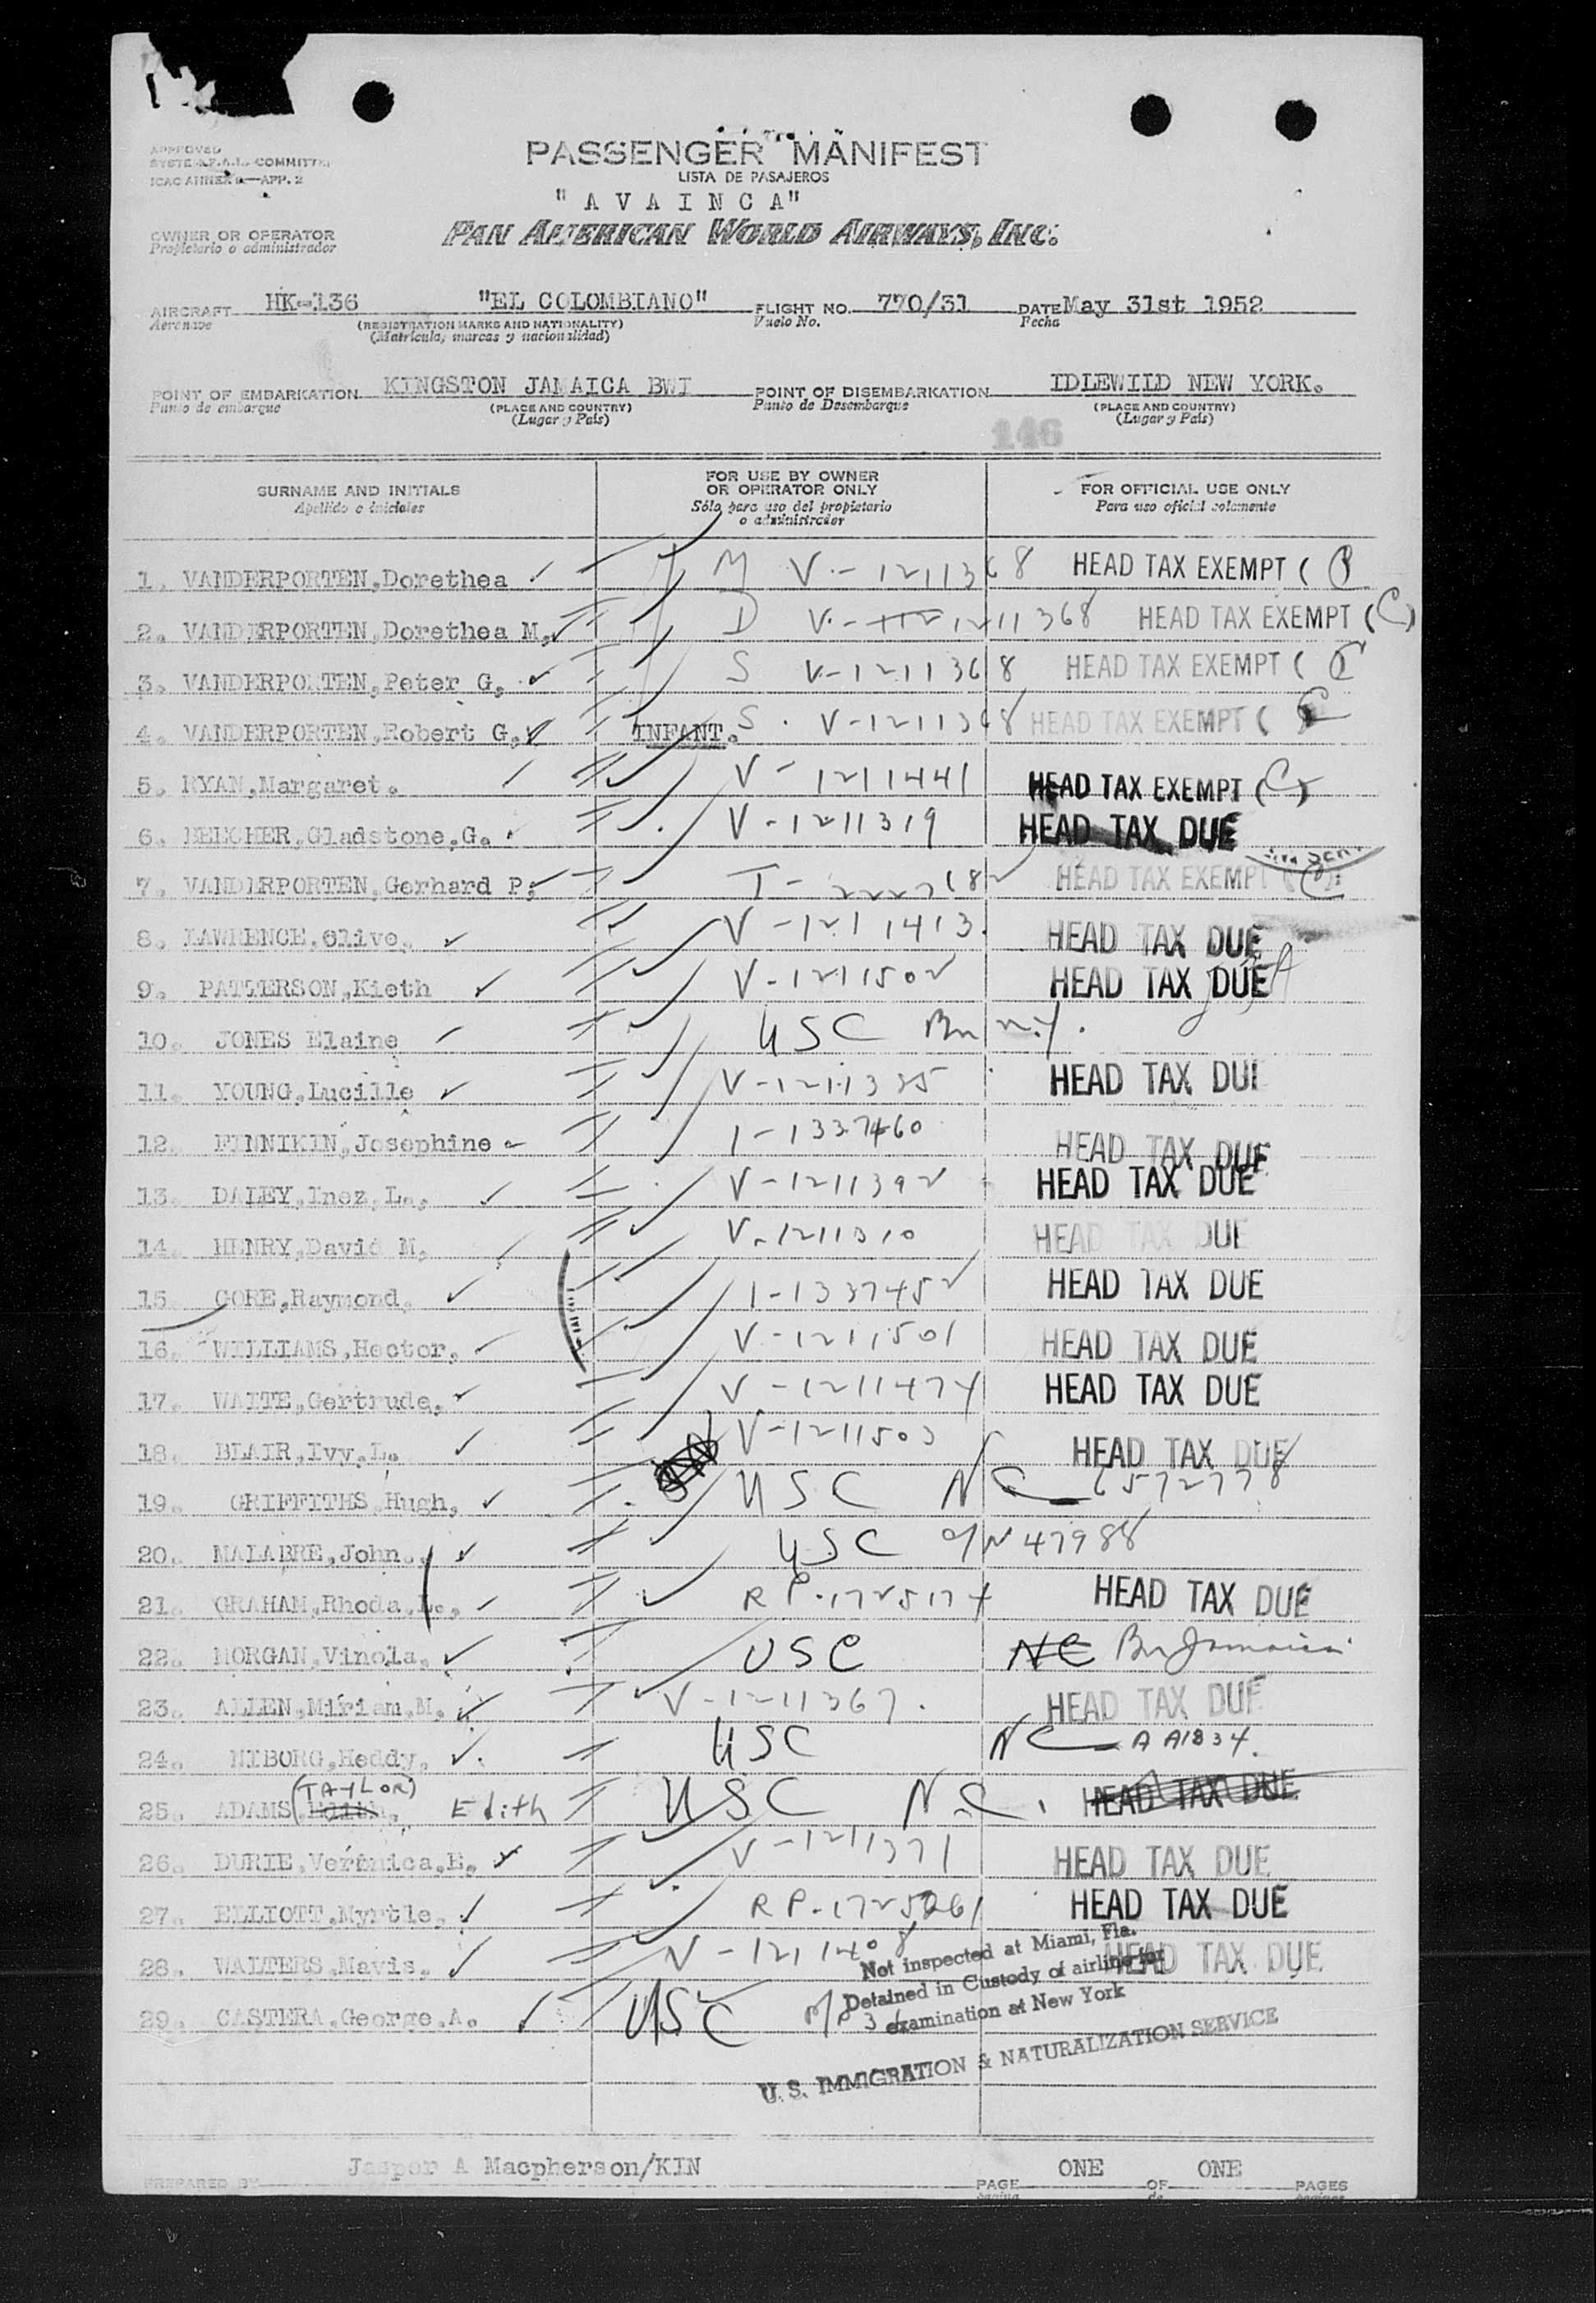 APPROVED
SYSTEM F.A.L. COMMITTEE
ICAO ANNEX 9—APP. 2
PASSENGER MANIFEST
LISTA DE PASAJEROS
"AVAINCA"
OWNER OR OPERATOR
Propietario o administrador
PAN AMERICAN WORLD AIRWAYS, INC.
AIRCRAFT HK-136 "EL COLOMBIANO" FLIGHT NO. 770/31 DATE May 31st 1952
Aeronave (REGISTRATION MARKS AND NATIONALITY) Vuelo No. Fecha
(Matrícula, marcas y nacionalidad)
POINT OF EMBARKATION KINGSTON JAMAICA BWI POINT OF DISEMBARKATION IDLEWILD NEW YORK.
Punto de embarque (PLACE AND COUNTRY) Punto de Desembarque (PLACE AND COUNTRY)
(Lugar y País) (Lugar y País)
146
SURNAME AND INITIALS FOR USE BY OWNER OR OPERATOR ONLY FOR OFFICIAL USE ONLY
Apellido e iniciales Sólo para uso del propietario o administrador Para uso oficial solamente
1. VANDERPORTEN,Dorethea M V-1211368 HEAD TAX EXEMPT (C
2. VANDERPORTEN,Dorethea M. D V.- 1211368 HEAD TAX EXEMPT (C)
3. VANDERPORTEN,Peter G. S V-1211368 HEAD TAX EXEMPT (C
4. VANDERPORTEN,Robert G. INFANT. S. V-1211368 HEAD TAX EXEMPT (C
5. RYAN,Margaret. V-1211441 HEAD TAX EXEMPT (C)
6. BEECHER,Gladstone,G. V-1211319 HEAD TAX DUE
7. VANDERPORTEN,Gerhard P. HEAD TAX EXEMPT (C)
8. LAWRENCE,Olive. V-1211413. HEAD TAX DUE
9. PATTERSON,Kieth V-1211502 HEAD TAX DUE
10. JONES Elaine USC Bn n.y.
11. YOUNG,Lucille V-1211335 HEAD TAX DUE
12. FINNIKIN,Josephine I-1337460 HEAD TAX DUE
13. DALEY,Inez,L., V-1211392 HEAD TAX DUE
14. HENRY,David M, V-1211310 HEAD TAX DUE
15. GORE,Raymond. I-1337452 HEAD TAX DUE
16. WILLIAMS,Hector, V-1211501 HEAD TAX DUE
17. WAITE,Gertrude, V-1211474 HEAD TAX DUE
18. BLAIR,Ivy,L. V-1211503 HEAD TAX DUE
19. GRIFFITHS,Hugh, USC NC 6572778
20. MALABRE,John., USC 47988
21. GRAHAM,Rhoda,L., RP-1725174 HEAD TAX DUE
22. MORGAN,Vinola. USC NC Bn Jamaica
23. ALLEN,Miriam,M. V-1211367. HEAD TAX DUE
24. NIBORG,Heddy, USC NC AA1834.
(TAYLOR)
25. ADAMS,Edith, Edith USC N.C. HEAD TAX DUE
26. DURIE,Verinica,E. V-1211371 HEAD TAX DUE
27. ELLIOTT,Myrtle, RP-1725261 HEAD TAX DUE
28. WALTERS,Mavis. V-1211408 HEAD TAX DUE
29. CASTERA,George,A. USC
Not inspected at Miami, Fla.
Detained in Custody of airline for
examination at New York
U. S. IMMIGRATION & NATURALIZATION SERVICE
PREPARED BY Jasper A Macpherson/KIN
PAGE ONE OF ONE PAGES
página de páginas